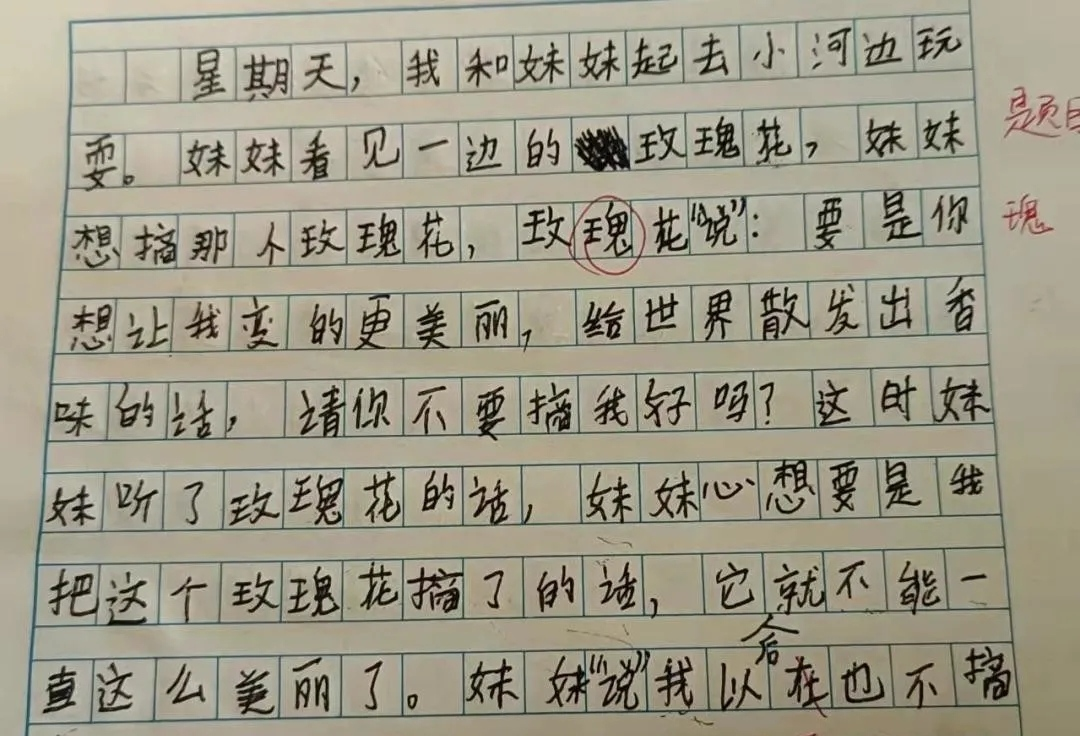 星期天，我和妹妹起去小河边玩
耍。妹妹看见一边的玫瑰花，妹妹
想摘那个玫瑰花，玫瑰花“说”：要是你
想让我变的更美丽，给世界散发出香
味的话，请你不要摘我好吗？这时妹
妹听了玫瑰花的话，妹妹心想要是我
把这个玫瑰花摘了的话，它就不能一
直这么美丽了。妹妹“说”我以后在也不摘
题目
瑰